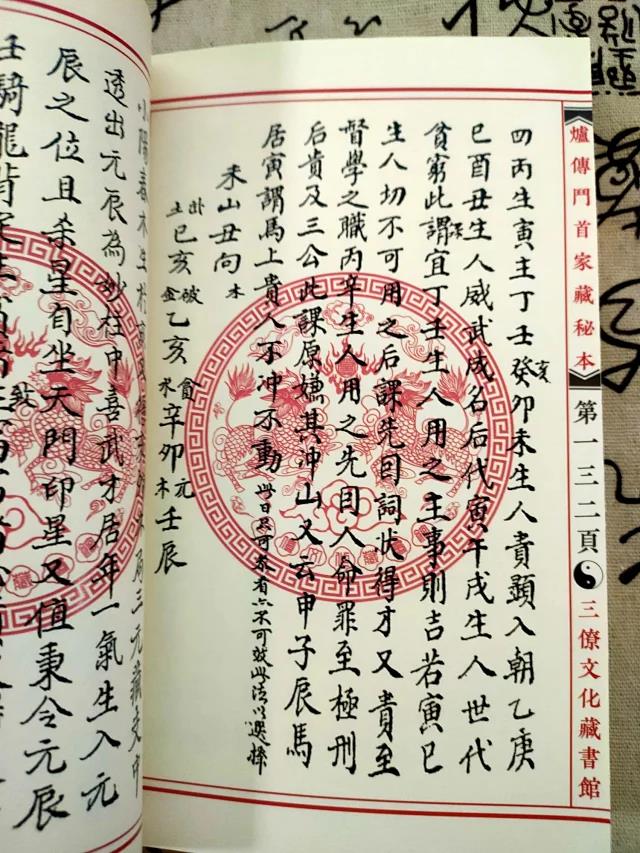 爐傳門首家藏秘本 第一三二頁 三僚文化藏書館
四丙生寅主丁壬癸卯未生人貴顯入朝乙庚
亥
巳酉丑生人威武成名后代寅午戌生人世代
貧窮此謂宜丁壬生人用之主事則吉若寅巳
生人切不可用之后課先回詞狀得才又貴至
督學之職丙辛生人用之先回人命罪至極刑
后貴及三公此課原嫌其冲山又云申子辰馬
居寅謂馬上貴人不冲不動 此日只可参看不可效此法以選擇
未山丑向 木
卦 破 禽 元
己亥 乙亥 辛卯 壬辰
土 金 水 木
小陽春木生 局三元藏支中
透出元辰為妙柱中喜武才居年一氣生入元
辰之位且杀星自坐天門印星又值秉令元辰
壬騎龍背